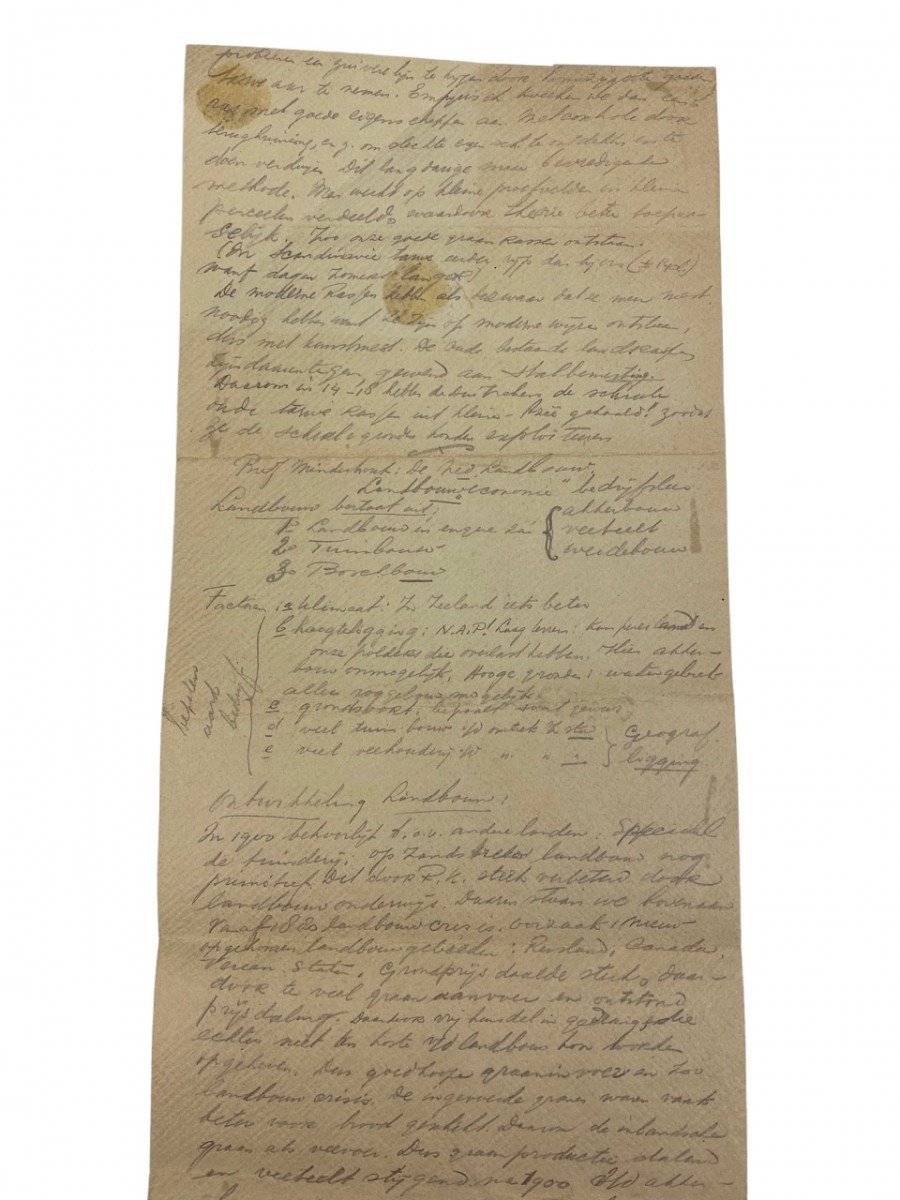 proberen een zuivere lijn te krijgen door homozygote goede
aar te nemen. Empyrisch kweeken we dan een
ras met goede eigenschappen aan. Met controle door
terugkruising, om slechte eigenschappen te ontdekken en te
doen verdwijnen. Dit langdurige maar bevredigende
methode. Men werkt op kleine proefvelden in kleine
perceelen verdeeld, waardoor theorie beter toepas-
selijk. Zoo onze goede graanrassen ontstaan.
(In Scandinavie tarwe eerder rijp dan bij ons
want dagen zomers langer)
De moderne Rassen hebben als bezwaar dat ze meer mest
noodig hebben want ze zijn op moderne wijze ontstaan,
dus met kunstmest. De oude bestaande landrassen
zijn daarentegen gewend aan stalbemesting.
Daarom in 14-18 hebben de Duitschers de schrale
oude tarwe rassen uit Klein-Azië gehaald! zoodat
ze de schrale gronden konden exploiteeren
Prof. Minderhoud: De Ned. Landbouw.
Landbouweconomie " bedrijfsleer
Landbouw bestaat uit:
1o Landbouw in engere zin { akkerbouw
2o Tuinbouw veeteelt
3o Boschbouw weidebouw
Factoren: a klimaat: In Zeeland iets beter
b hoogteligging: N.A.P! Laag terrein: Kamper eiland en
onze polders die overlast hebben. Hier akker-
bouw onmogelijk. Hooge gronden: watergebrek
alleen roggebouw mogelijk.
c grondsoort: bepaalt soort gewas
d veel tuinbouw i/d omtrek v. stad } Geograf.
e veel veehouderij i/d " " " ligging
bepalen
aard
bedrijf
Ontwikkeling Landbouw:
In 1900 behoorlijk t.o.v. andere landen. Speciaal
de tuinderij. Op zandstreken landbouw nog
primitief. Dit door R.K. sterk verbeterd door
landbouw onderwijs. Daarin staan we bovenaan
Vanaf 1880 landbouwcrisis. Oorzaak: nieuw
opgekomen landbouwgebieden: Rusland, Canada,
Vereen. Staten. Graanprijs daalde sterk, daar-
door te veel graan aanvoer en ontstond
prijsdaling. Daardoor vrijhandel in gedrang, die
echter niet ten koste v/d landbouw kon worden
opgeheven. Dus goedkoope graaninvoer en zoo
landbouw crisis. De ingevoerde granen waren vaak
beter voor brood geschikt. Daarom de inlandsche
graan als veevoer. Dus graanproductie dalend
en veeteelt stijgend. Na 1900 akker-